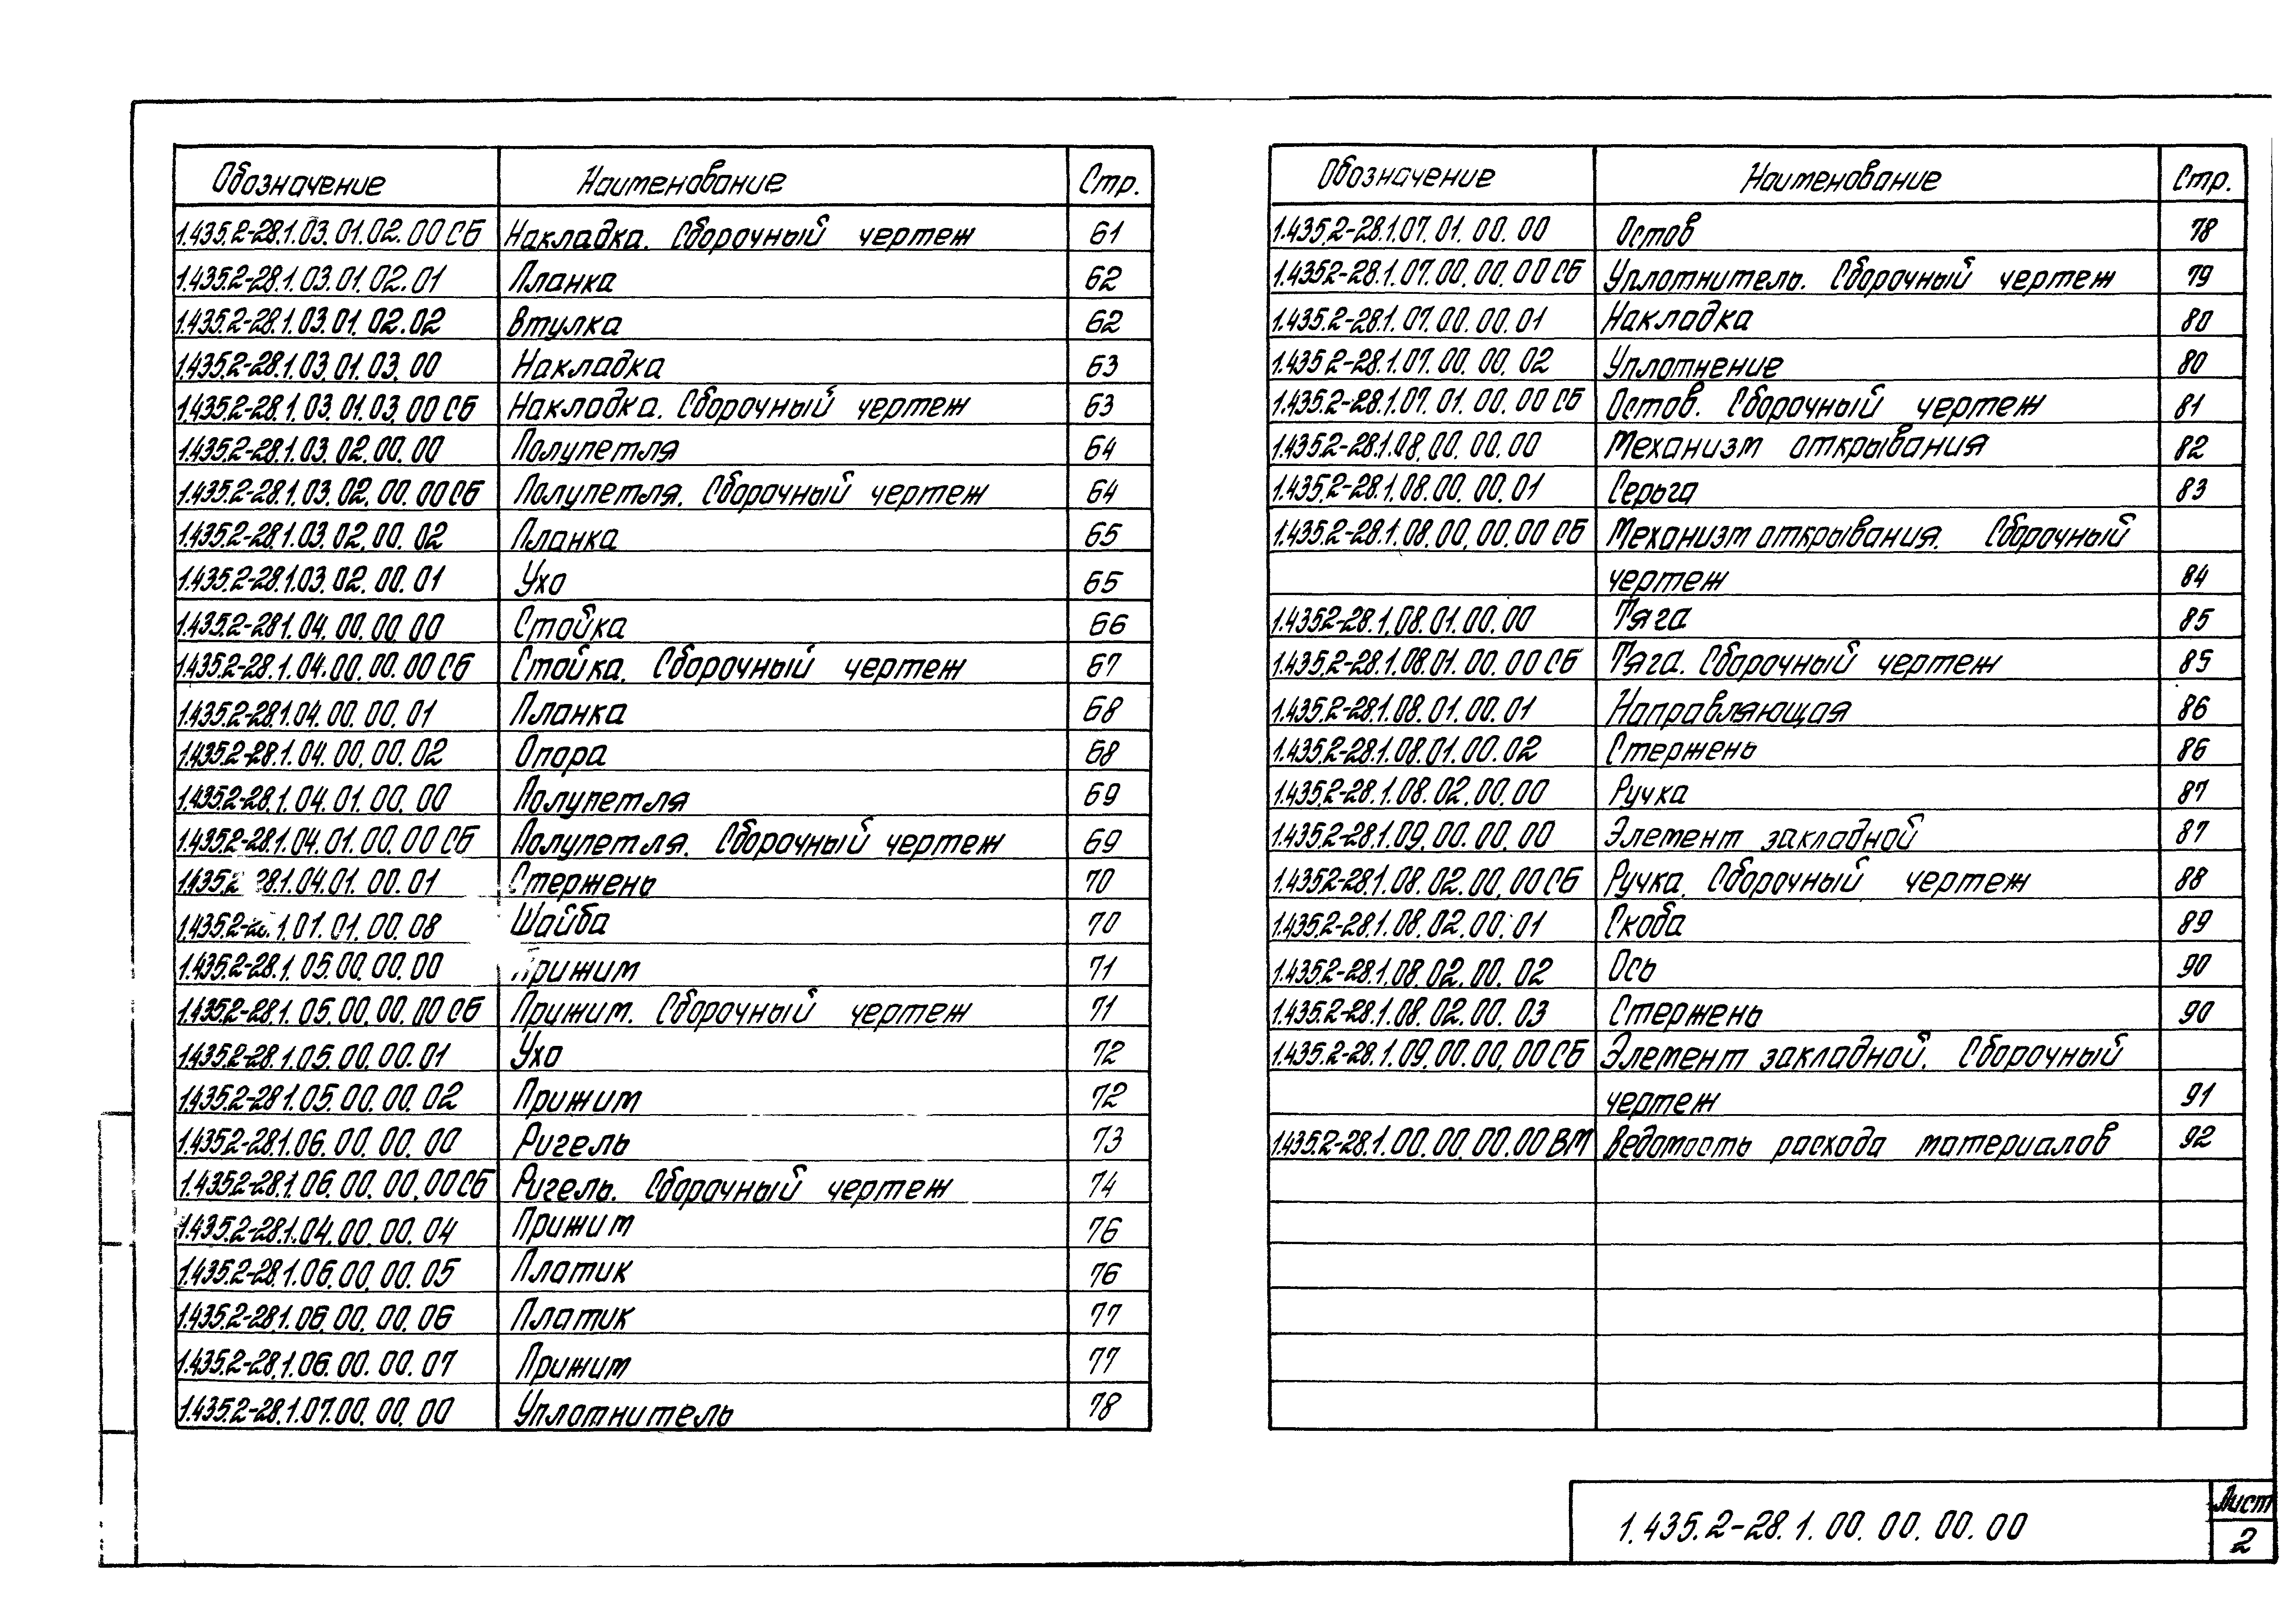 Обозначение Наименование Стр.
1.435.2-28.1.03.01.02.00СБ Накладка. Сборочный чертеж 61
1.435.2-28.1.03.01.02.01 Планка 62
1.435.2-28.1.03.01.02.02 Втулка 62
1.435.2-28.1.03.01.03.00 Накладка 63
1.435.2-28.1.03.01.03.00СБ Накладка. Сборочный чертеж 63
1.435.2-28.1.03.02.00.00 Полупетля 64
1.435.2-28.1.03.02.00.00СБ Полупетля. Сборочный чертеж 64
1.435.2-28.1.03.02.00.02 Планка 65
1.435.2-28.1.03.02.00.01 Ухо 65
1.435.2-28.1.04.00.00.00 Стойка 66
1.435.2-28.1.04.00.00.00СБ Стойка. Сборочный чертеж 67
1.435.2-28.1.04.00.00.01 Планка 68
1.435.2-28.1.04.00.00.02 Опора 68
1.435.2-28.1.04.01.00.00 Полупетля 69
1.435.2-28.1.04.01.00.00СБ Полупетля. Сборочный чертеж 69
1.435.2-28.1.04.01.00.01 Стержень 70
1.435.2-28.1.01.01.00.08 Шайба 70
1.435.2-28.1.05.00.00.00 Прижим 71
1.435.2-28.1.05.00.00.00СБ Прижим. Сборочный чертеж 71
1.435.2-28.1.05.00.00.01 Ухо 72
1.435.2-28.1.05.00.00.02 Прижим 72
1.435.2-28.1.06.00.00.00 Ригель 73
1.435.2-28.1.06.00.00.00СБ Ригель. Сборочный чертеж 74
1.435.2-28.1.04.00.00.04 Прижим 76
1.435.2-28.1.06.00.00.05 Платик 76
1.435.2-28.1.06.00.00.06 Платик 77
1.435.2-28.1.06.00.00.07 Прижим 77
1.435.2-28.1.07.00.00.00 Уплотнитель 78
Обозначение Наименование Стр.
1.435.2-28.1.07.01.00.00 Остов 78
1.435.2-28.1.07.00.00.00СБ Уплотнитель. Сборочный чертеж 79
1.435.2-28.1.07.00.00.01 Накладка 80
1.435.2-28.1.07.00.00.02 Уплотнение 80
1.435.2-28.1.07.01.00.00СБ Остов. Сборочный чертеж 81
1.435.2-28.1.08.00.00.00 Механизм открывания 82
1.435.2-28.1.08.00.00.01 Серьга 83
1.435.2-28.1.08.00.00.00СБ Механизм открывания. Сборочный
чертеж 84
1.435.2-28.1.08.01.00.00 Тяга 85
1.435.2-28.1.08.01.00.00СБ Тяга. Сборочный чертеж 85
1.435.2-28.1.08.01.00.01 Направляющая 86
1.435.2-28.1.08.01.00.02 Стержень 86
1.435.2-28.1.08.02.00.00 Ручка 87
1.435.2-28.1.09.00.00.00 Элемент закладной 87
1.435.2-28.1.08.02.00.00СБ Ручка. Сборочный чертеж 88
1.435.2-28.1.08.02.00.01 Скоба 89
1.435.2-28.1.08.02.00.02 Ось 90
1.435.2-28.1.08.02.00.03 Стержень 90
1.435.2-28.1.09.00.00.00СБ Элемент закладной. Сборочный
чертеж 91
1.435.2-28.1.00.00.00.00ВМ Ведомость расхода материалов 92
1.435.2-28.1.00.00.00.00
Лист
2